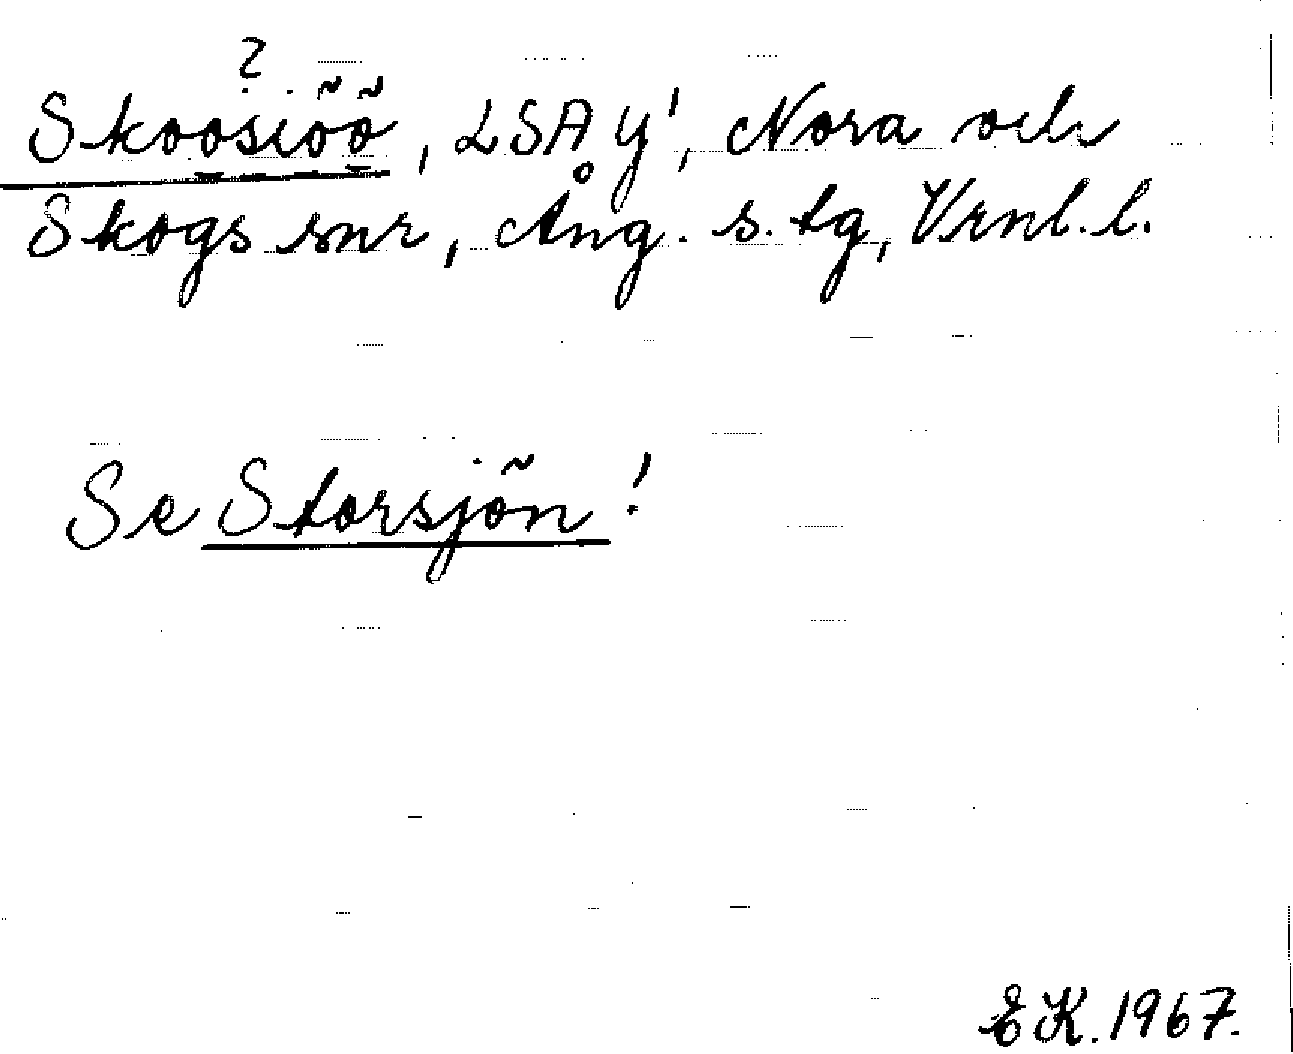 ?
Skoosiöö, LSA Y', Nora och
Skogs snr, Ång. s. tg, Vrnl. l.
Se Storsjön!
EK. 1967.